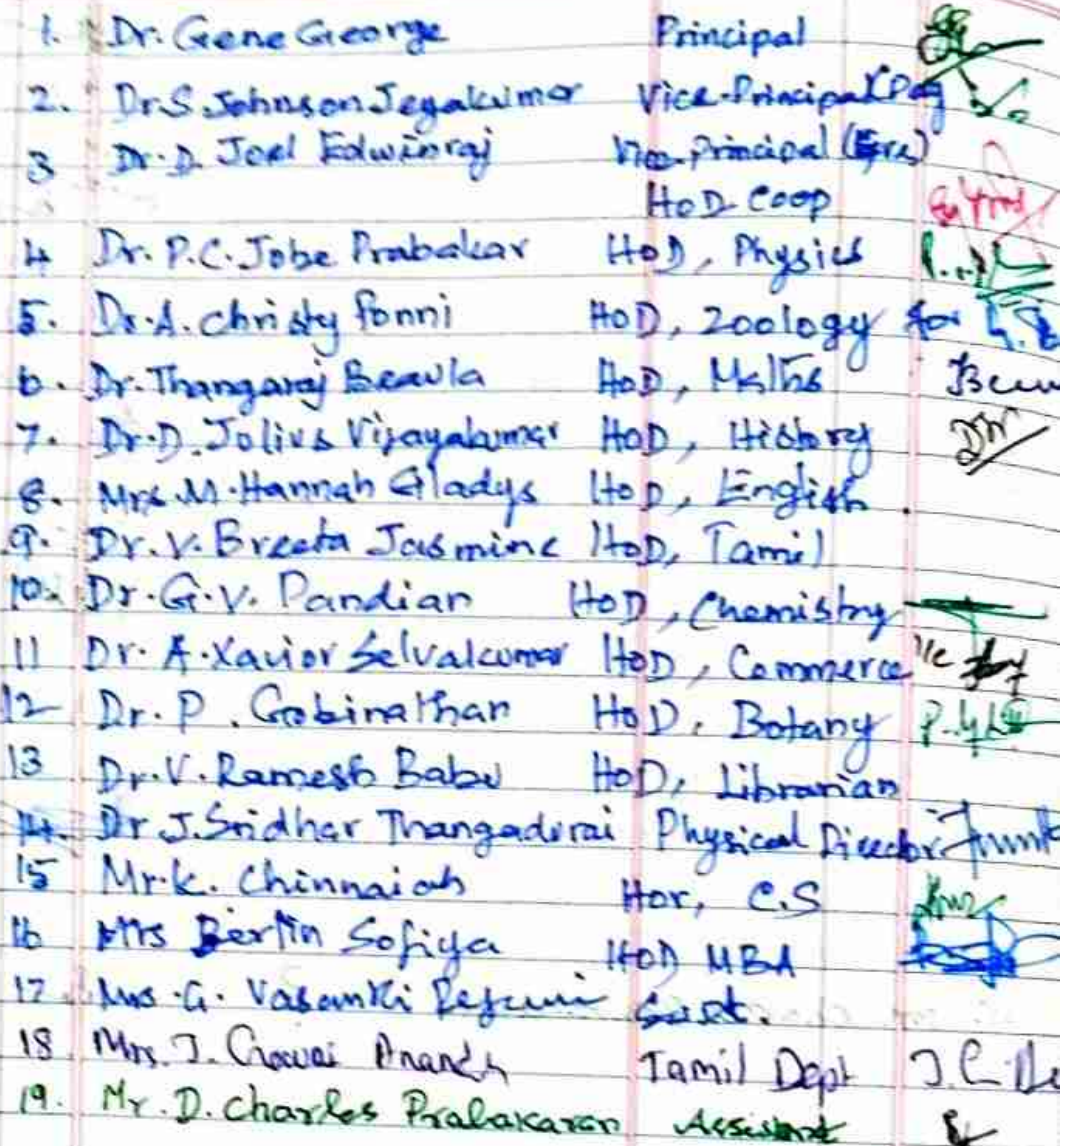 1. Dr. Gene George Principal
2. Dr.S. Johnson Jeyakumar Vice-Principal
3 Dr. D. Joel Edwinraj Vice-Principal
HoD Coop
4 Dr. P.C. Jobe Prabakar HoD, Physics
5. Dr.A. Christy Ponni HoD, Zoology for
6. Dr. Thangaraj Beaula HoD, Maths
7. Dr.D. Jolius Vijayakumar HoD, History
8. Mrs. M. Hannah Gladys HoD, English.
9. Dr. V. Breeta Jasmine HoD, Tamil
10. Dr. G. V. Pandian HoD, Chemistry
11 Dr. A. Xavior Selvakumar HoD, Commerce
12 Dr. P. Gobinathan HoD, Botany
13 Dr. V. Ramesh Babu HoD, Librarian
14. Dr J. Sridhar Thangadurai Physical Director
15 Mr.K. Chinnaiah Hor, C.S
16 Mrs Berlin Sofiya HOD MBA
17. Mrs. G. Vasanthi
18. Mrs. J. Anandh Tamil Dept
19. Mr. D. Charles Prabakaran Assistant